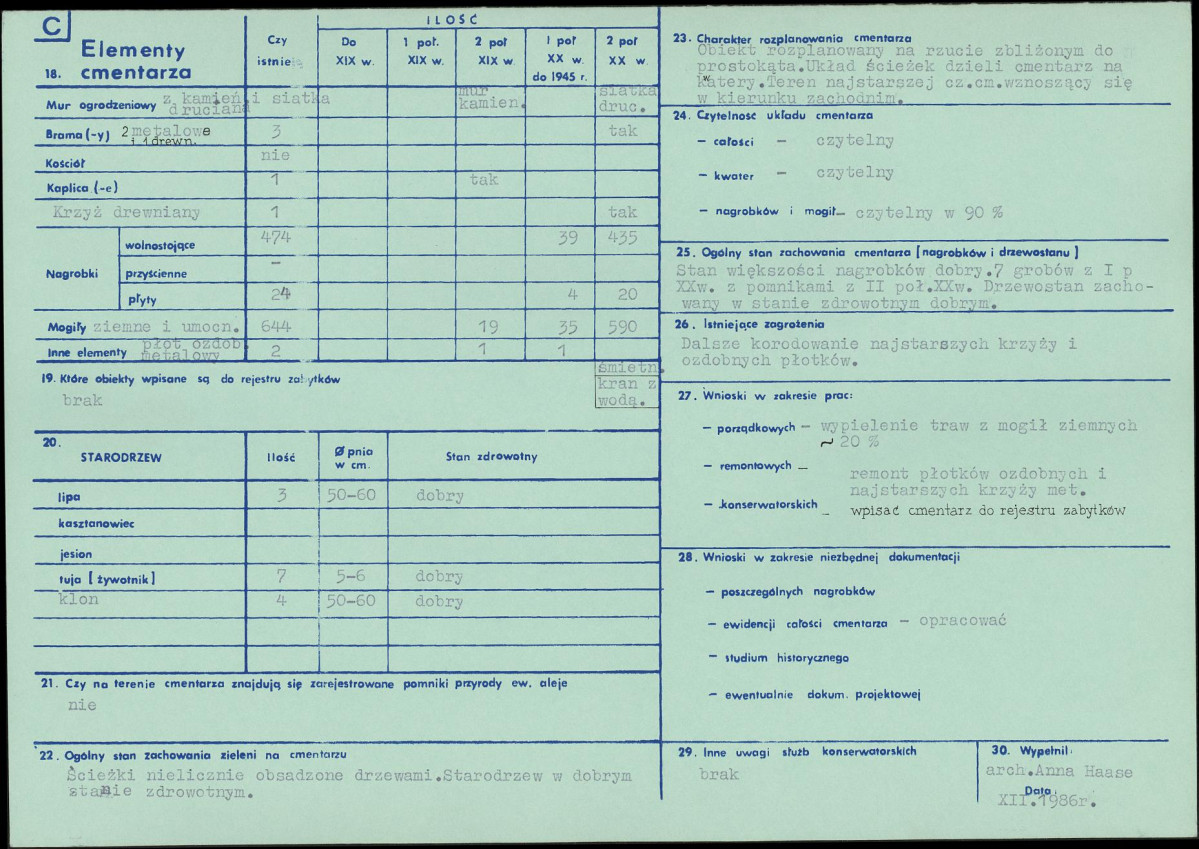 C
18. Elementy cmentarza
Czy istnieją
ILOŚĆ
Do XIX w.
1 poł. XIX w.
2 poł XIX w.
1 poł XX w. do 1945 r.
2 poł XX w.
Mur ogrodzeniowy z kamieni i siatka druciana
mur kamien.
siatka druc.
Brama (-y) 2 metalowe i 1 drewn. 3 tak
Kościół nie
Kaplica (-e) 1 tak
Krzyż drewniany 1 tak
Nagrobki
wolnostojące 474 39 435
przyścienne –
płyty 24 4 20
Mogiły ziemne i umocn. 644 19 35 590
Inne elementy płot ozdob. metalowy 2 1 1
śmietn.
kran z wodą.
19. Które obiekty wpisane są do rejestru zabytków
brak
20.
STARODRZEW Ilość Ø pnia w cm. Stan zdrowotny
lipa 3 50-60 dobry
kasztanowiec
jesion
tuja [żywotnik] 7 5-6 dobry
klon 4 50-60 dobry
21. Czy na terenie cmentarza znajdują się zarejestrowane pomniki przyrody ew. aleje
nie
22. Ogólny stan zachowania zieleni na cmentarzu
Ścieżki nielicznie obsadzone drzewami.Starodrzew w dobrym
stanie zdrowotnym.
23. Charakter rozplanowania cmentarza
Obiekt rozplanowany na rzucie zbliżonym do
prostokąta.Układ ścieżek dzieli cmentarz na
kwatery.Teren najstarszej cz.cm.wznoszący się
w kierunku zachodnim.
24. Czytelnosc układu cmentarza
– całości – czytelny
– kwater – czytelny
– nagrobków i mogił – czytelny w 90 %
25. Ogólny stan zachowania cmentarza [nagrobków i drzewostanu]
Stan większości nagrobków dobry.7 grobów z I p
XXw. z pomnikami z II poł.XXw. Drzewostan zacho-
wany w stanie zdrowotnym dobrym.
26. Istniejące zagrożenia
Dalsze korodowanie najstarszych krzyży i
ozdobnych płotków.
27. Wnioski w zakresie prac:
– porządkowych – wypielenie traw z mogił ziemnych
~ 20 %
– remontowych – remont płotków ozdobnych i
najstarszych krzyży met.
– konserwatorskich – wpisać cmentarz do rejestru zabytków
28. Wnioski w zakresie niezbędnej dokumentacji
– poszczególnych nagrobków
– ewidencji całości cmentarza – opracować
– studium historycznego
– ewentualnie dokum. projektowej
29. Inne uwagi służb konserwatorskich
brak
30. Wypełnił:
arch.Anna Haase
Data:
XII.1986r.